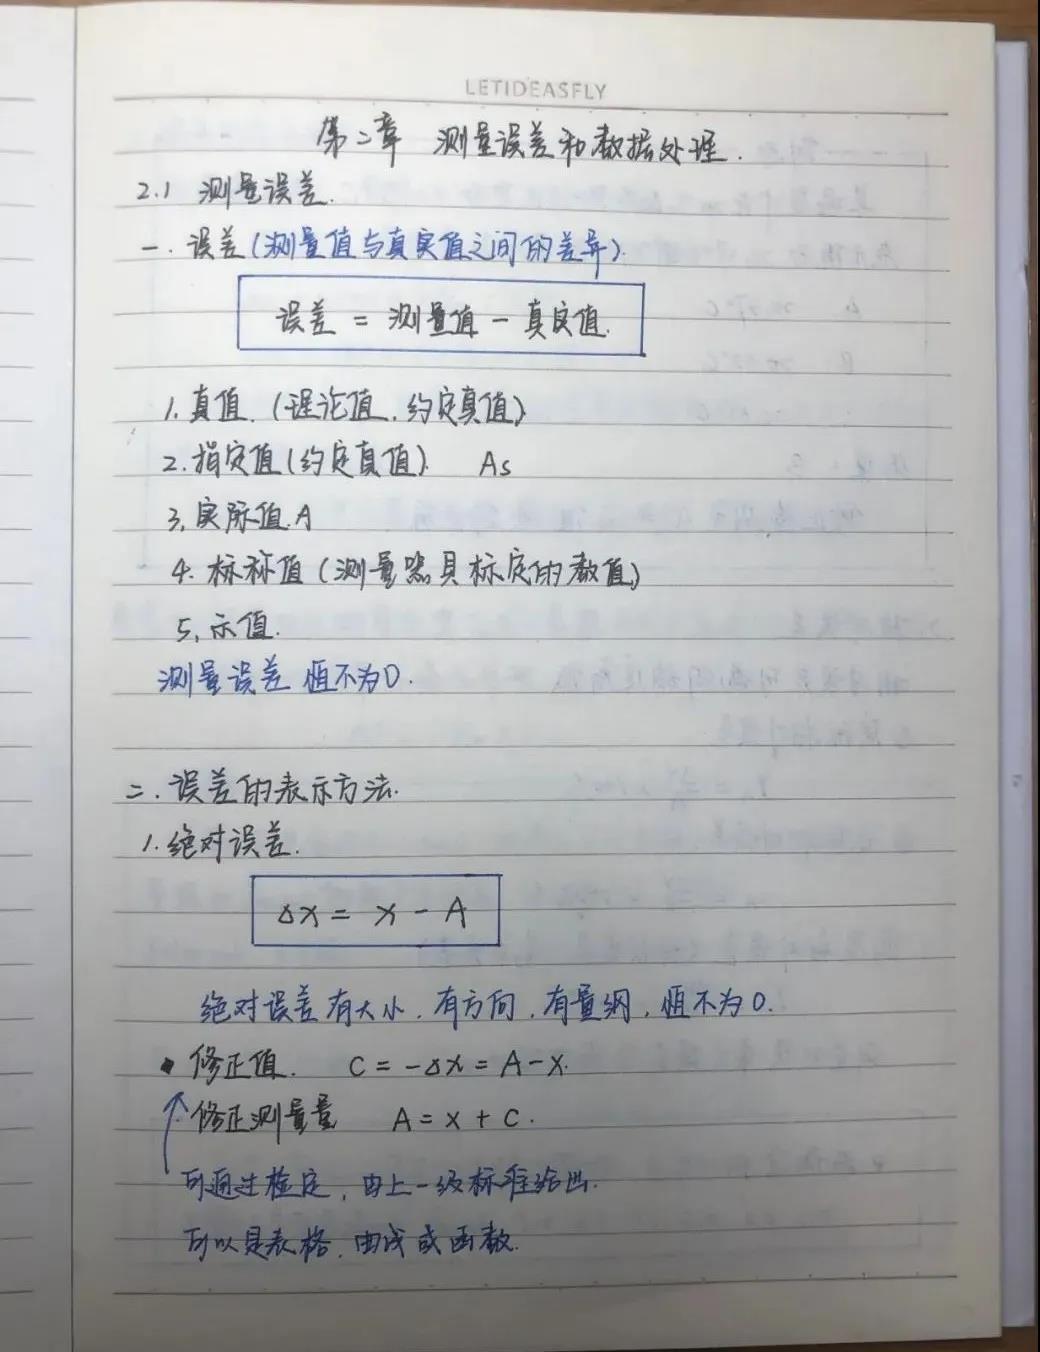 LETIDEASFLY
第二章 测量误差和数据处理.
2.1 测量误差.
一. 误差(测量值与真实值之间的差异).
误差 = 测量值 - 真实值.
1. 真值. (理论值. 约定真值)
2. 指定值(约定真值). As
3. 实际值. A
4. 标称值 (测量器具标定的数值)
5. 示值.
测量误差 恒不为0.
二. 误差的表示方法.
1. 绝对误差.
Δx = x - A
绝对误差有大小. 有方向. 有量纲, 恒不为0.
修正值. C = -Δx = A - x.
修正测量量 A = x + C.
可通过检定, 由上一级标准给出.
可以是表格. 曲线或函数.